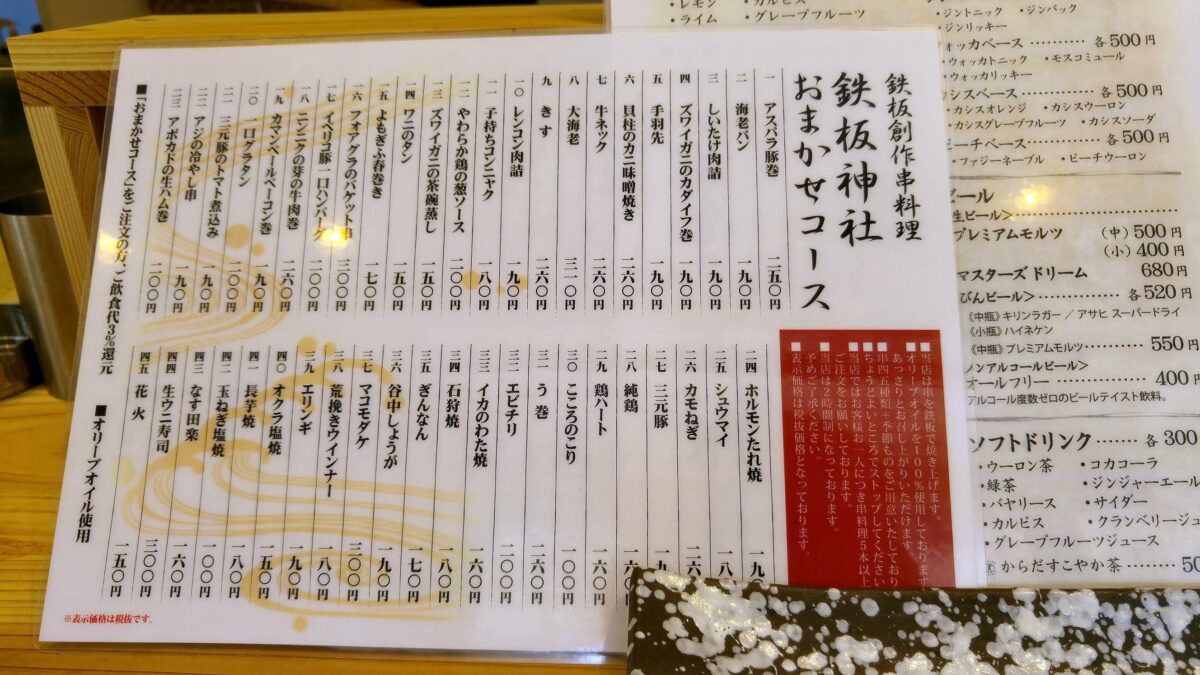 鉄板創作串料理
鉄板神社
おまかせコース
一 アスパラ豚巻 二五〇円
二 海老パン 一九〇円
三 しいたけ肉詰 一九〇円
四 ズワイガニのカダイフ巻 一九〇円
五 手羽先 一九〇円
六 貝柱のカニ味噌焼き 二六〇円
七 牛ネック 二六〇円
八 大海老 三一〇円
九 きす 二六〇円
一〇 レンコン肉詰 一九〇円
一一 子持ちコンニャク 一八〇円
一二 やわらか鶏の葱ソース 二〇〇円
一三 ズワイガニの茶碗蒸し 一五〇円
一四 ワニのタン 一五〇円
一五 よもぎふ春巻き 一七〇円
一六 フォアグラのバケット串 三〇〇円
一七 イベリコ豚一口ハンバーグ 二〇〇円
一八 ニンニクの芽の牛肉巻 二六〇円
一九 カマンベールベーコン巻 一九〇円
二〇 一口グラタン 二〇〇円
二一 三元豚のトマト煮込み 一九〇円
二二 アジの冷やし串 一九〇円
二三 アボカドの生ハム巻 二〇〇円
■「おまかせコース」をご注文の方、ご飲食代3%還元
■当店は串を鉄板で焼き上げます。
■オリーブオイルを100%使用しております
あっさりとお召し上がりいただけます。
■串四五種類+季節ものをご用意いたしており
■ちょうどよいところでストップしてください
■当店ではお客様お一人につき串料理5本以上
ご注文をお願いしております。
■当店は2時間制になっております。
予めご了承ください。
■表示価格は税抜価格となっております。
二四 ホルモンたれ焼
二五 シュウマイ
二六 カモねぎ
二七 三元豚
二八 純鶏
二九 鶏ハート 一六〇円
三〇 こころのこり 一〇〇円
三一 う巻 二六〇円
三二 エビチリ 二〇〇円
三三 イカのわた焼 一六〇円
三四 石狩焼 一八〇円
三五 ぎんなん 一七〇円
三六 谷中しょうが 一九〇円
三七 マコモダケ 二五〇円
三八 荒挽きウインナー 二〇〇円
三九 エリンギ 一〇〇円
四〇 オクラ塩焼 一九〇円
四一 長芋焼 一五〇円
四二 玉ねぎ塩焼 一八〇円
四三 なす田楽 一〇〇円
四四 生ウニ寿司 一六〇円
四五 花火 三〇〇円
一五〇円
■オリーブオイル使用
※表示価格は税抜です。
・レモン ・カルピス
・ライム ・グレープフルーツ
・ジントニック ・ジンバック
・ジンリッキー
ォッカベース 各500円
・ウォッカトニック ・モスコミュール
・ウォッカリッキー
カシスベース 各500円
・カシスオレンジ ・カシスウーロン
・カシスグレープフルーツ ・カシスソーダ
ーチベース 各500円
・ファジーネーブル ・ピーチウーロン
ビール
生ビール>
プレミアムモルツ (中) 500円
(小) 400円
マスターズドリーム 680円
びんビール> 各520円
《中瓶》キリンラガー / アサヒ スーパードライ
《小瓶》ハイネケン
《中瓶》プレミアムモルツ 550円
ノンアルコールビール>
オールフリー 400円
アルコール度数ゼロのビールテイスト飲料。
ソフトドリンク 各300
・ウーロン茶 ・コカコーラ
・緑茶 ・ジンジャーエール
・バヤリース ・サイダー
・カルピス ・クランベリージュ
・グレープフルーツジュース
からだすこやか茶 50